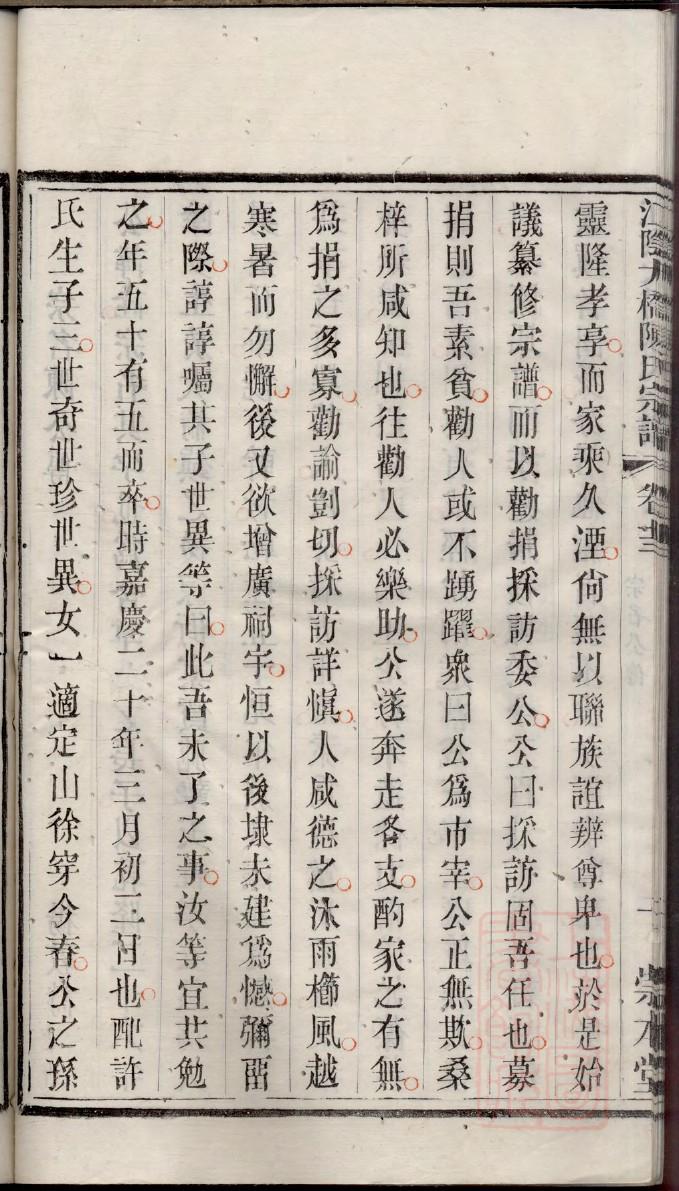 江陰九橋陳氏宗譜 卷廿三 崇本堂
靈隆孝享而家乘久湮尙無以聯族誼辨尊卑也於是始
議纂修宗譜而以勸捐採訪委公公曰採訪固吾任也募
捐則吾素貧勸人或不踴躍衆曰公爲市宰公正無欺桑
梓所咸知也往勸人必樂助公遂奔走各支酌家之有無
爲捐之多寡勸諭剴切採訪詳愼人咸德之沐雨櫛風越
寒暑而勿懈後又欲增廣祠宇恒以後埭未建爲憾彌畱
之際諄諄囑其子世異等曰此吾未了之事汝等宜共勉
之年五十有五而卒時嘉慶二十年三月初二日也配許
氏生子三世奇世珍世異女一適定山徐穿今春公之孫